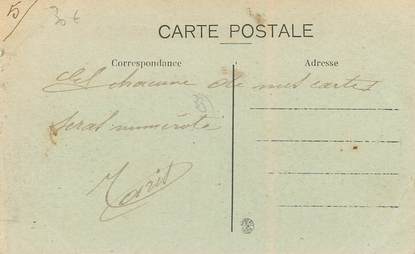 5/ 30€
CARTE POSTALE
Correspondance
Adresse
chacune de mes cartes
serat numérote